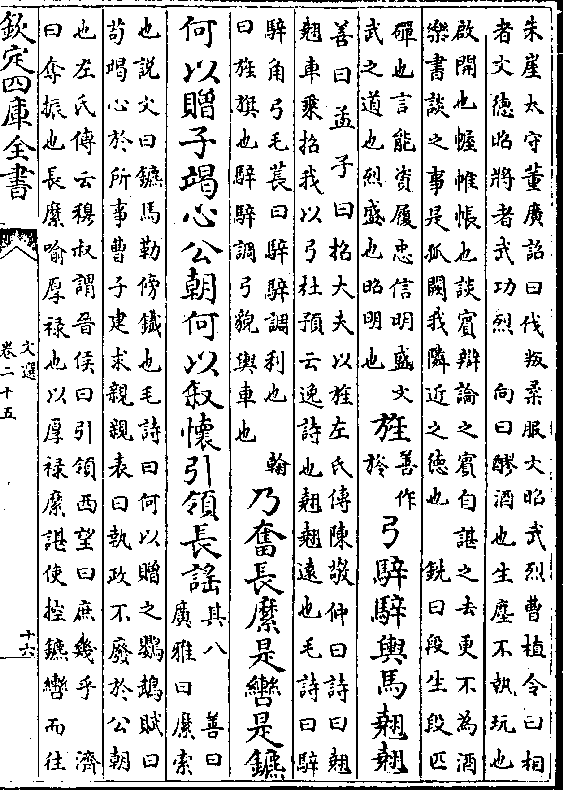 朱崖太守董廣詔曰伐叛柔服文昭武烈曹植令曰相
者文德昭將者武功烈　向曰醪酒也生塵不執玩也
啟開也幄帷帳也談賓辯論之賓自諶之去更不為酒
樂書談之事是孤闕我隣近之德也　銑曰段生段匹
磾也言能資履忠信明盛文
武之道也烈盛也昭明也
旌
善作
於
弓騂騂輿馬翹翹
善曰孟子曰招大夫以旌左氏傳陳敬仲曰詩曰翹
翹車乘招我以弓杜預云逸詩也翹翹遠也毛詩曰騂
騂角弓毛萇曰騂騂調利也　翰
曰旌旗也騂騂調弓貌輿車也
乃奮長縻是轡是鑣
何以贈子竭心公朝何以叙懷引領長謠
其八　善曰
廣雅曰縻索
也說文曰鑣馬勒傍鐵也毛詩曰何以贈之鸚鵡賦曰
苟竭心於所事曹子建求親親表曰執政不廢於公朝
也左氏傳云穆叔謂晉侯曰引領西望曰庶幾乎　濟
曰奪振也長縻喻厚祿也以厚祿縻諶使控鑣轡而往
欽定四庫全書
文選
卷二十五
十六